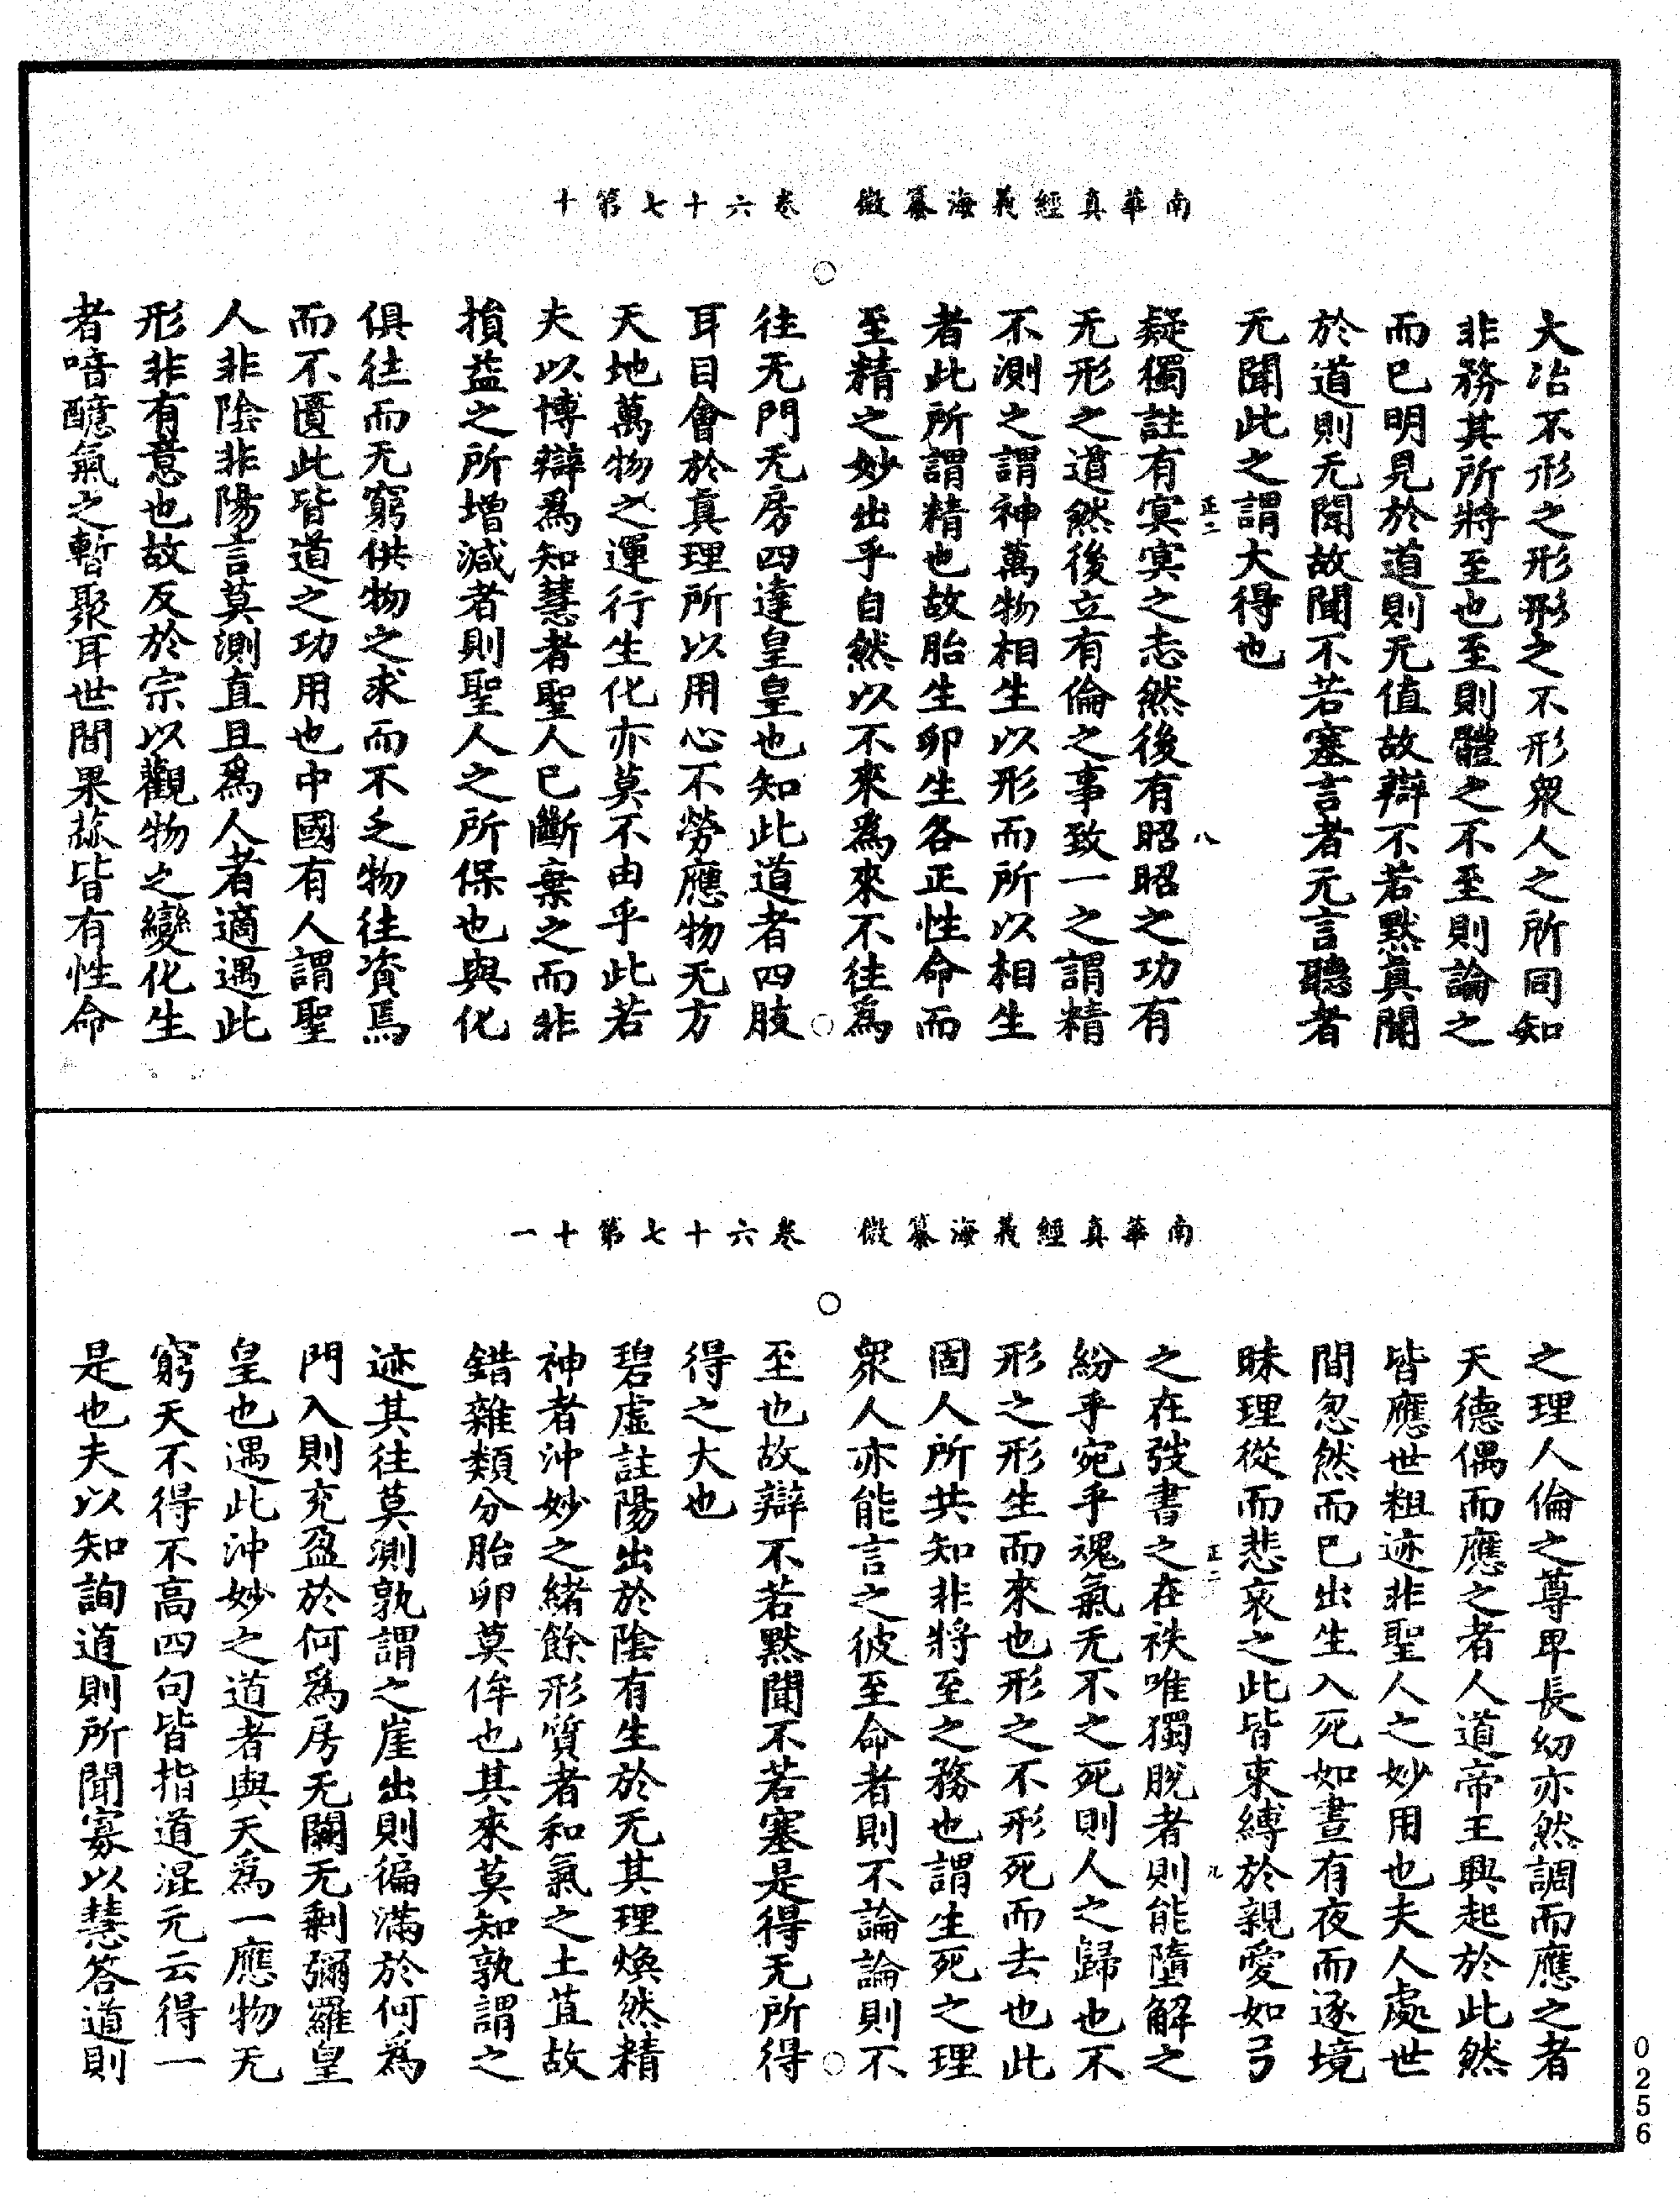 南華真經義海纂微　卷六十七第十
大冶不形之形形之不形眾人之所同知
非務其所將至也至則體之不至則論之
而已明見於道則无值故辯不若默真聞
於道則无聞故聞不若塞言者无言聽者
无聞此之謂大得也
疑獨註有冥冥之志然後有昭昭之功有
无形之道然後立有倫之事致一之謂精
不測之謂神萬物相生以形而所以相生
者此所謂精也故胎生卵生各正性命而
至精之妙出乎自然以不來為來不往為
往无門无房四達皇皇也知此道者四肢
耳目會於真理所以用心不勞應物无方
天地萬物之運行生化亦莫不由乎此若
夫以博辯為知慧者聖人已斷棄之而非
損益之所增減者則聖人之所保也與化
俱往而无窮供物之求而不乏物往資焉
而不匱此皆道之功用也中國有人謂聖
人非陰非陽言莫測直且為人者適遇此
形非有意也故反於宗以觀物之變化生
者喑醷氣之暫聚耳世間果蓏皆有性命
正二
八
南華真經義海纂微　卷六十七第十一
之理人倫之尊卑長幼亦然調而應之者
天德偶而應之者人道帝王興起於此然
皆應世粗迹非聖人之妙用也夫人處世
間忽然而已出生入死如晝有夜而逐境
昧理從而悲哀之此皆束縛於親愛如弓
之在弢書之在袟唯獨脫者則能墮解之
紛乎宛乎魂氣无不之死則人之歸也不
形之形生而來也形之不形死而去也此
固人所共知非將至之務也謂生死之理
眾人亦能言之彼至命者則不論論則不
至也故辯不若默聞不若塞是得无所得
得之大也
碧虛註陽出於陰有生於无其理煥然精
神者沖妙之緒餘形質者和氣之土苴故
錯雜類分胎卵莫侔也其來莫知孰謂之
迹其往莫測孰謂之崖出則徧滿於何為
門入則充盈於何為房无關无剩彌羅皇
皇也遇此沖妙之道者與天為一應物无
窮天不得不高四句皆指道混元云得一
是也夫以知詢道則所聞寡以慧答道則
正二
九
0256